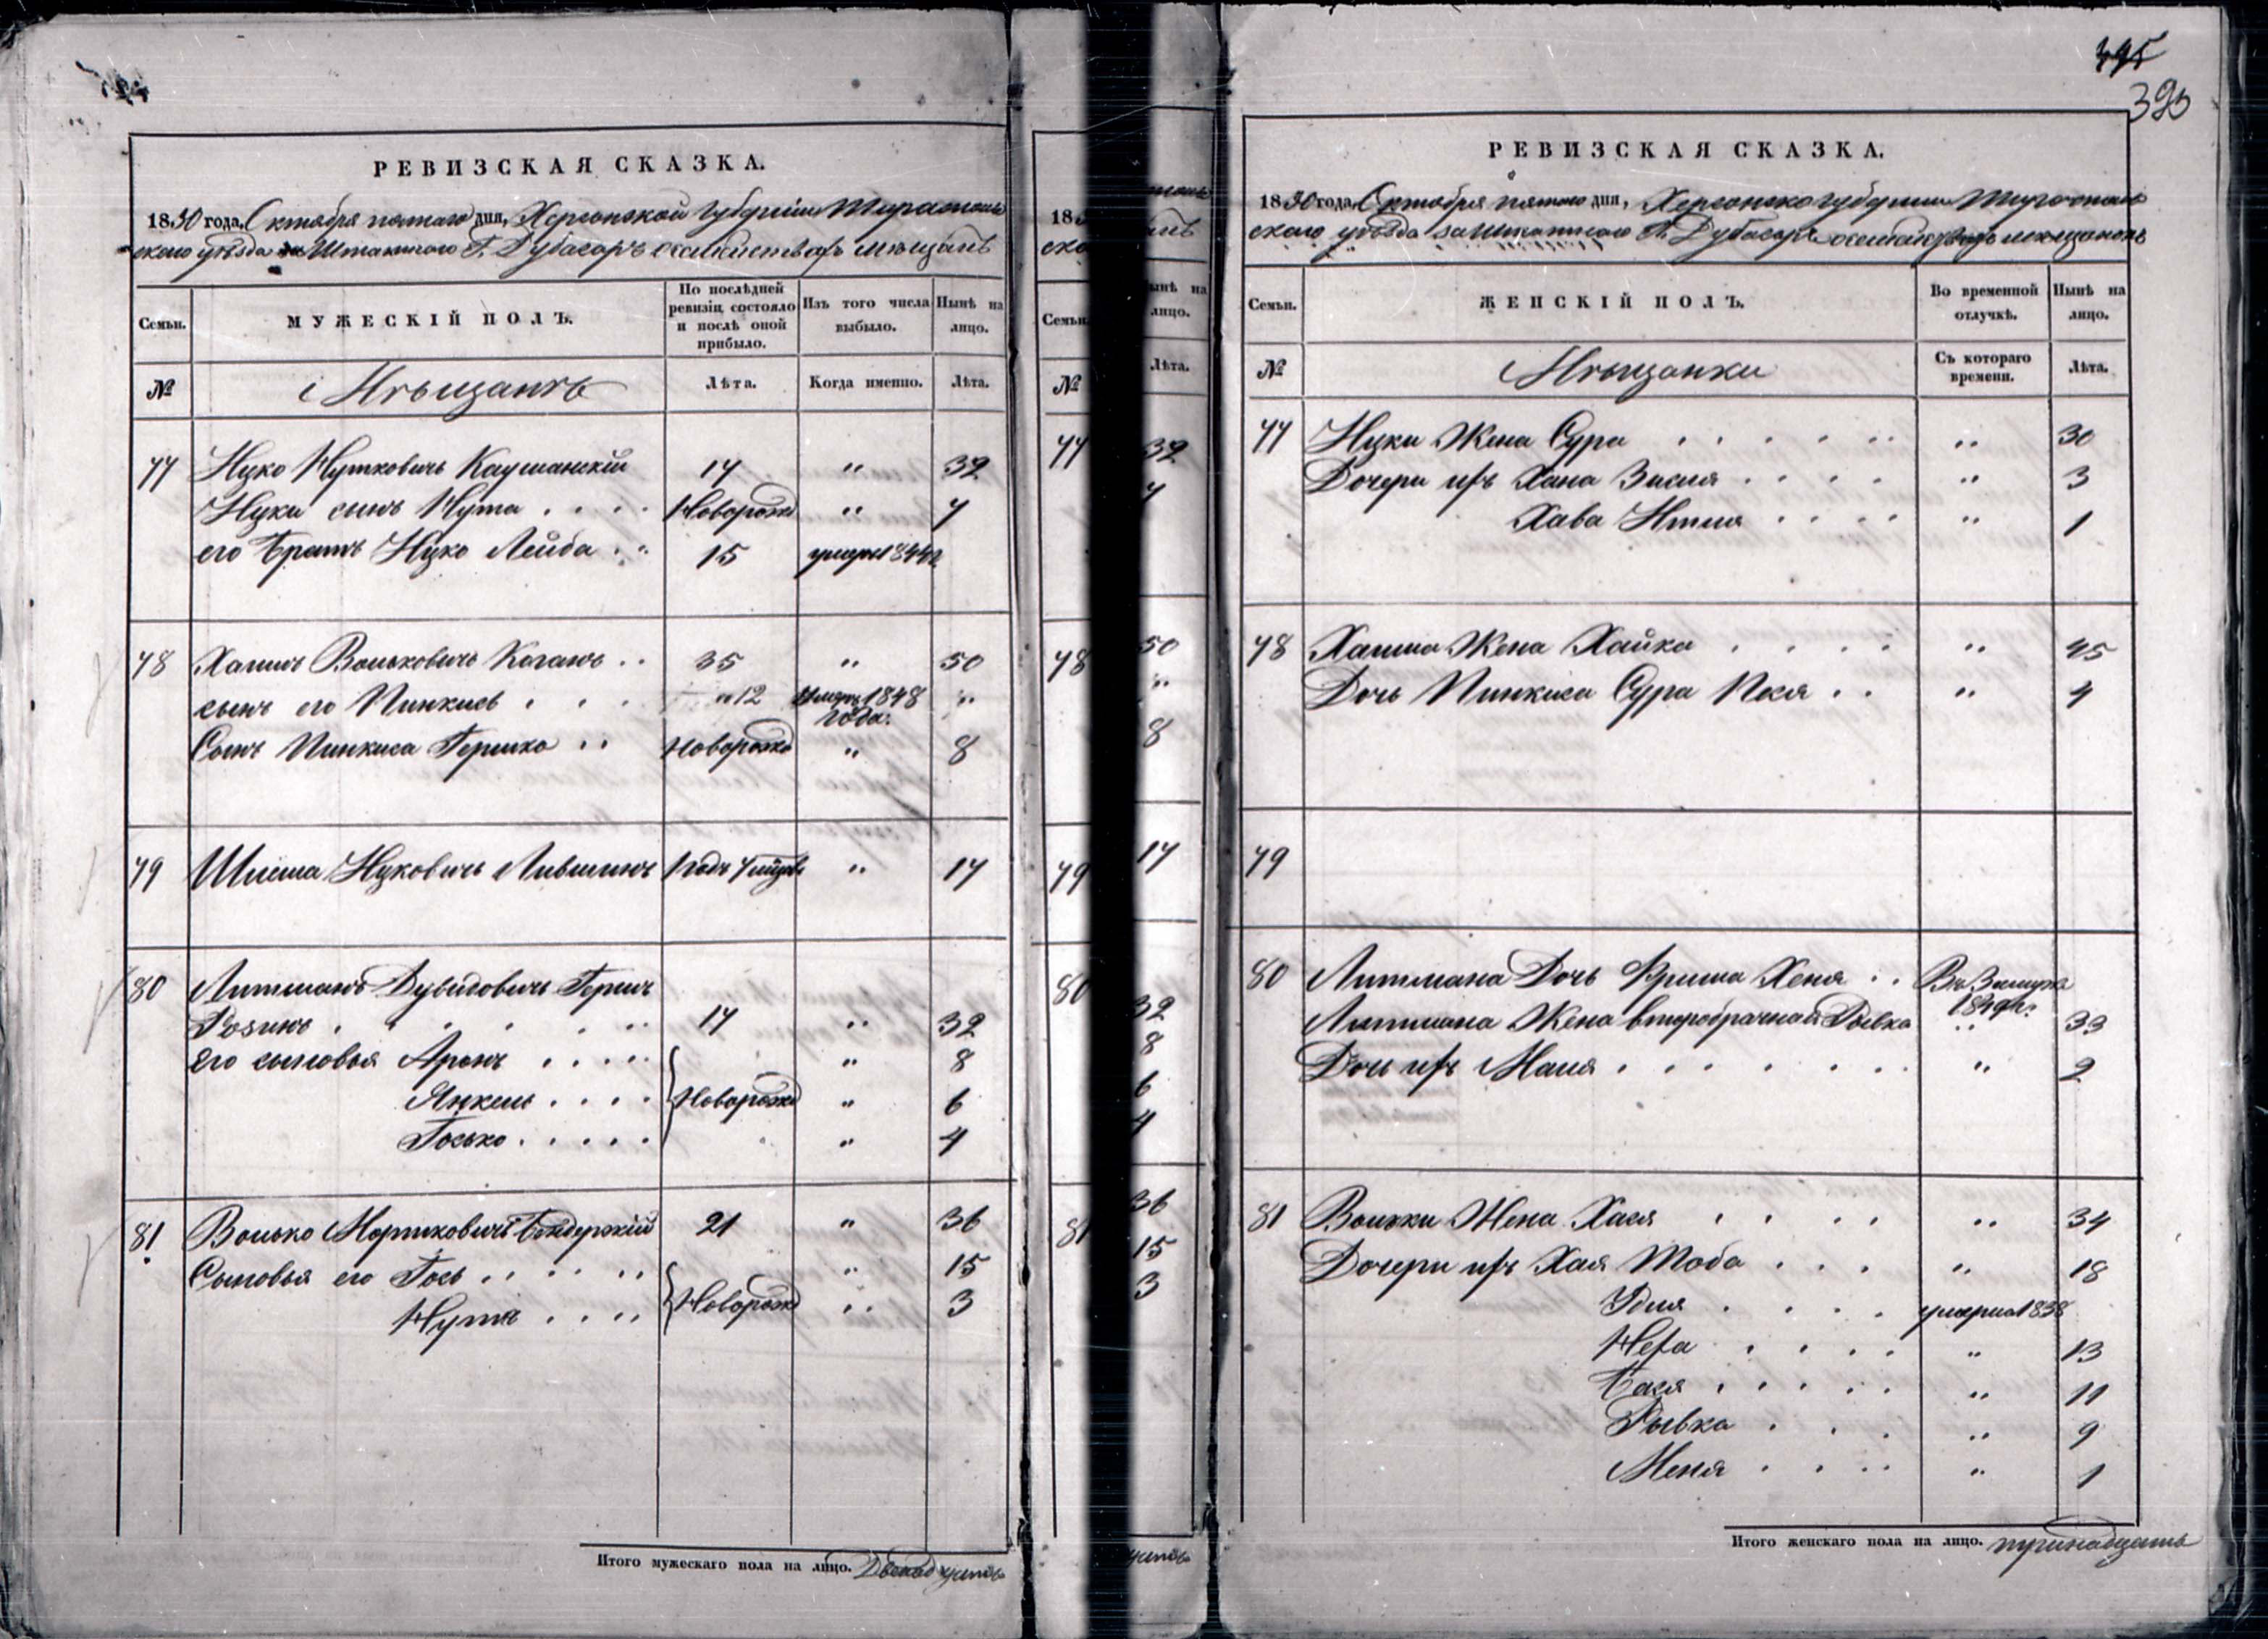 395
РЕВИЗСКАЯ СКАЗКА.
1850 года, Октября пятаго дня, Херсонской Губерніи Тираспольскаго уѣзда Штатнаго Г. Дубасаръ мѣщанъ
Семьи. МУЖЕСКІЙ ПОЛЪ. По послѣдней ревизіи состояло и послѣ оной прибыло. Изъ того числа выбыло. Нынѣ на лицо.
№ Мѣщанъ Лѣта. Когда именно. Лѣта.
77 Ицко Нутковичь Каушанскій 17 " 32
Ицки сынъ Нута Новорожд " 7
его братъ Ицко Лейба 15 умеръ 1844г.
78 Хаимъ Вольковичь Коганъ 35 " 50
сынъ его Пинкисъ " 12 Умеръ 1848 года. "
Сынъ Пинкиса Гершко Новорожд " 8
79 Шлема Ицковичь Лившинъ 1 годъ 7 мѣсяц " 17
80 Литманъ Дувидовичь Герш
Розинъ 17 " 32
Его сыновья Аронъ " 8
Янкель Новорожд " 6
Іосько " 4
81 Волько Моршковичь Бендерскій 21 " 36
Сыновья его Іось " 15
Нута Новорожд " 3
Итого мужескаго пола на лицо. Двенадцать
18
ско
Семьи
№
77
78
79
80
81
ынѣ на
лицо.
Лѣта.
32
7
50
"
8
17
32
8
6
4
36
15
3
395
РЕВИЗСКАЯ СКАЗКА.
1850 года, Октября пятаго дня, Херсонско Губерніи Тирасполь
скаго уѣзда заштатнаго Г. Дубасаръ мещанокъ
Семьи. ЖЕНСКІЙ ПОЛЪ. Во временной отлучкѣ. Нынѣ на лицо.
№ Мѣщанки Съ котораго времени. Лѣта.
77 Ицки Жена Сура " 30
Дочери ихъ Хана Зисля " 3
Хава Итля " 1
78 Хаима Жена Хайка " 45
Дочь Пинкиса Сура Песя " 4
79
80 Литмана Дочь Фриша Хеня Въ Замуж 1849г.
Литмана Жена второбрачная Рывка " 33
Дочь ихъ Маля " 2
81 Вольки Жена Хася " 34
Дочери ихъ Хая Тоба " 18
Удля умерла 1838
Неха " 13
Бася " 11
Рывка " 9
Меня " 1
Итого женскаго пола на лицо. тринадцать